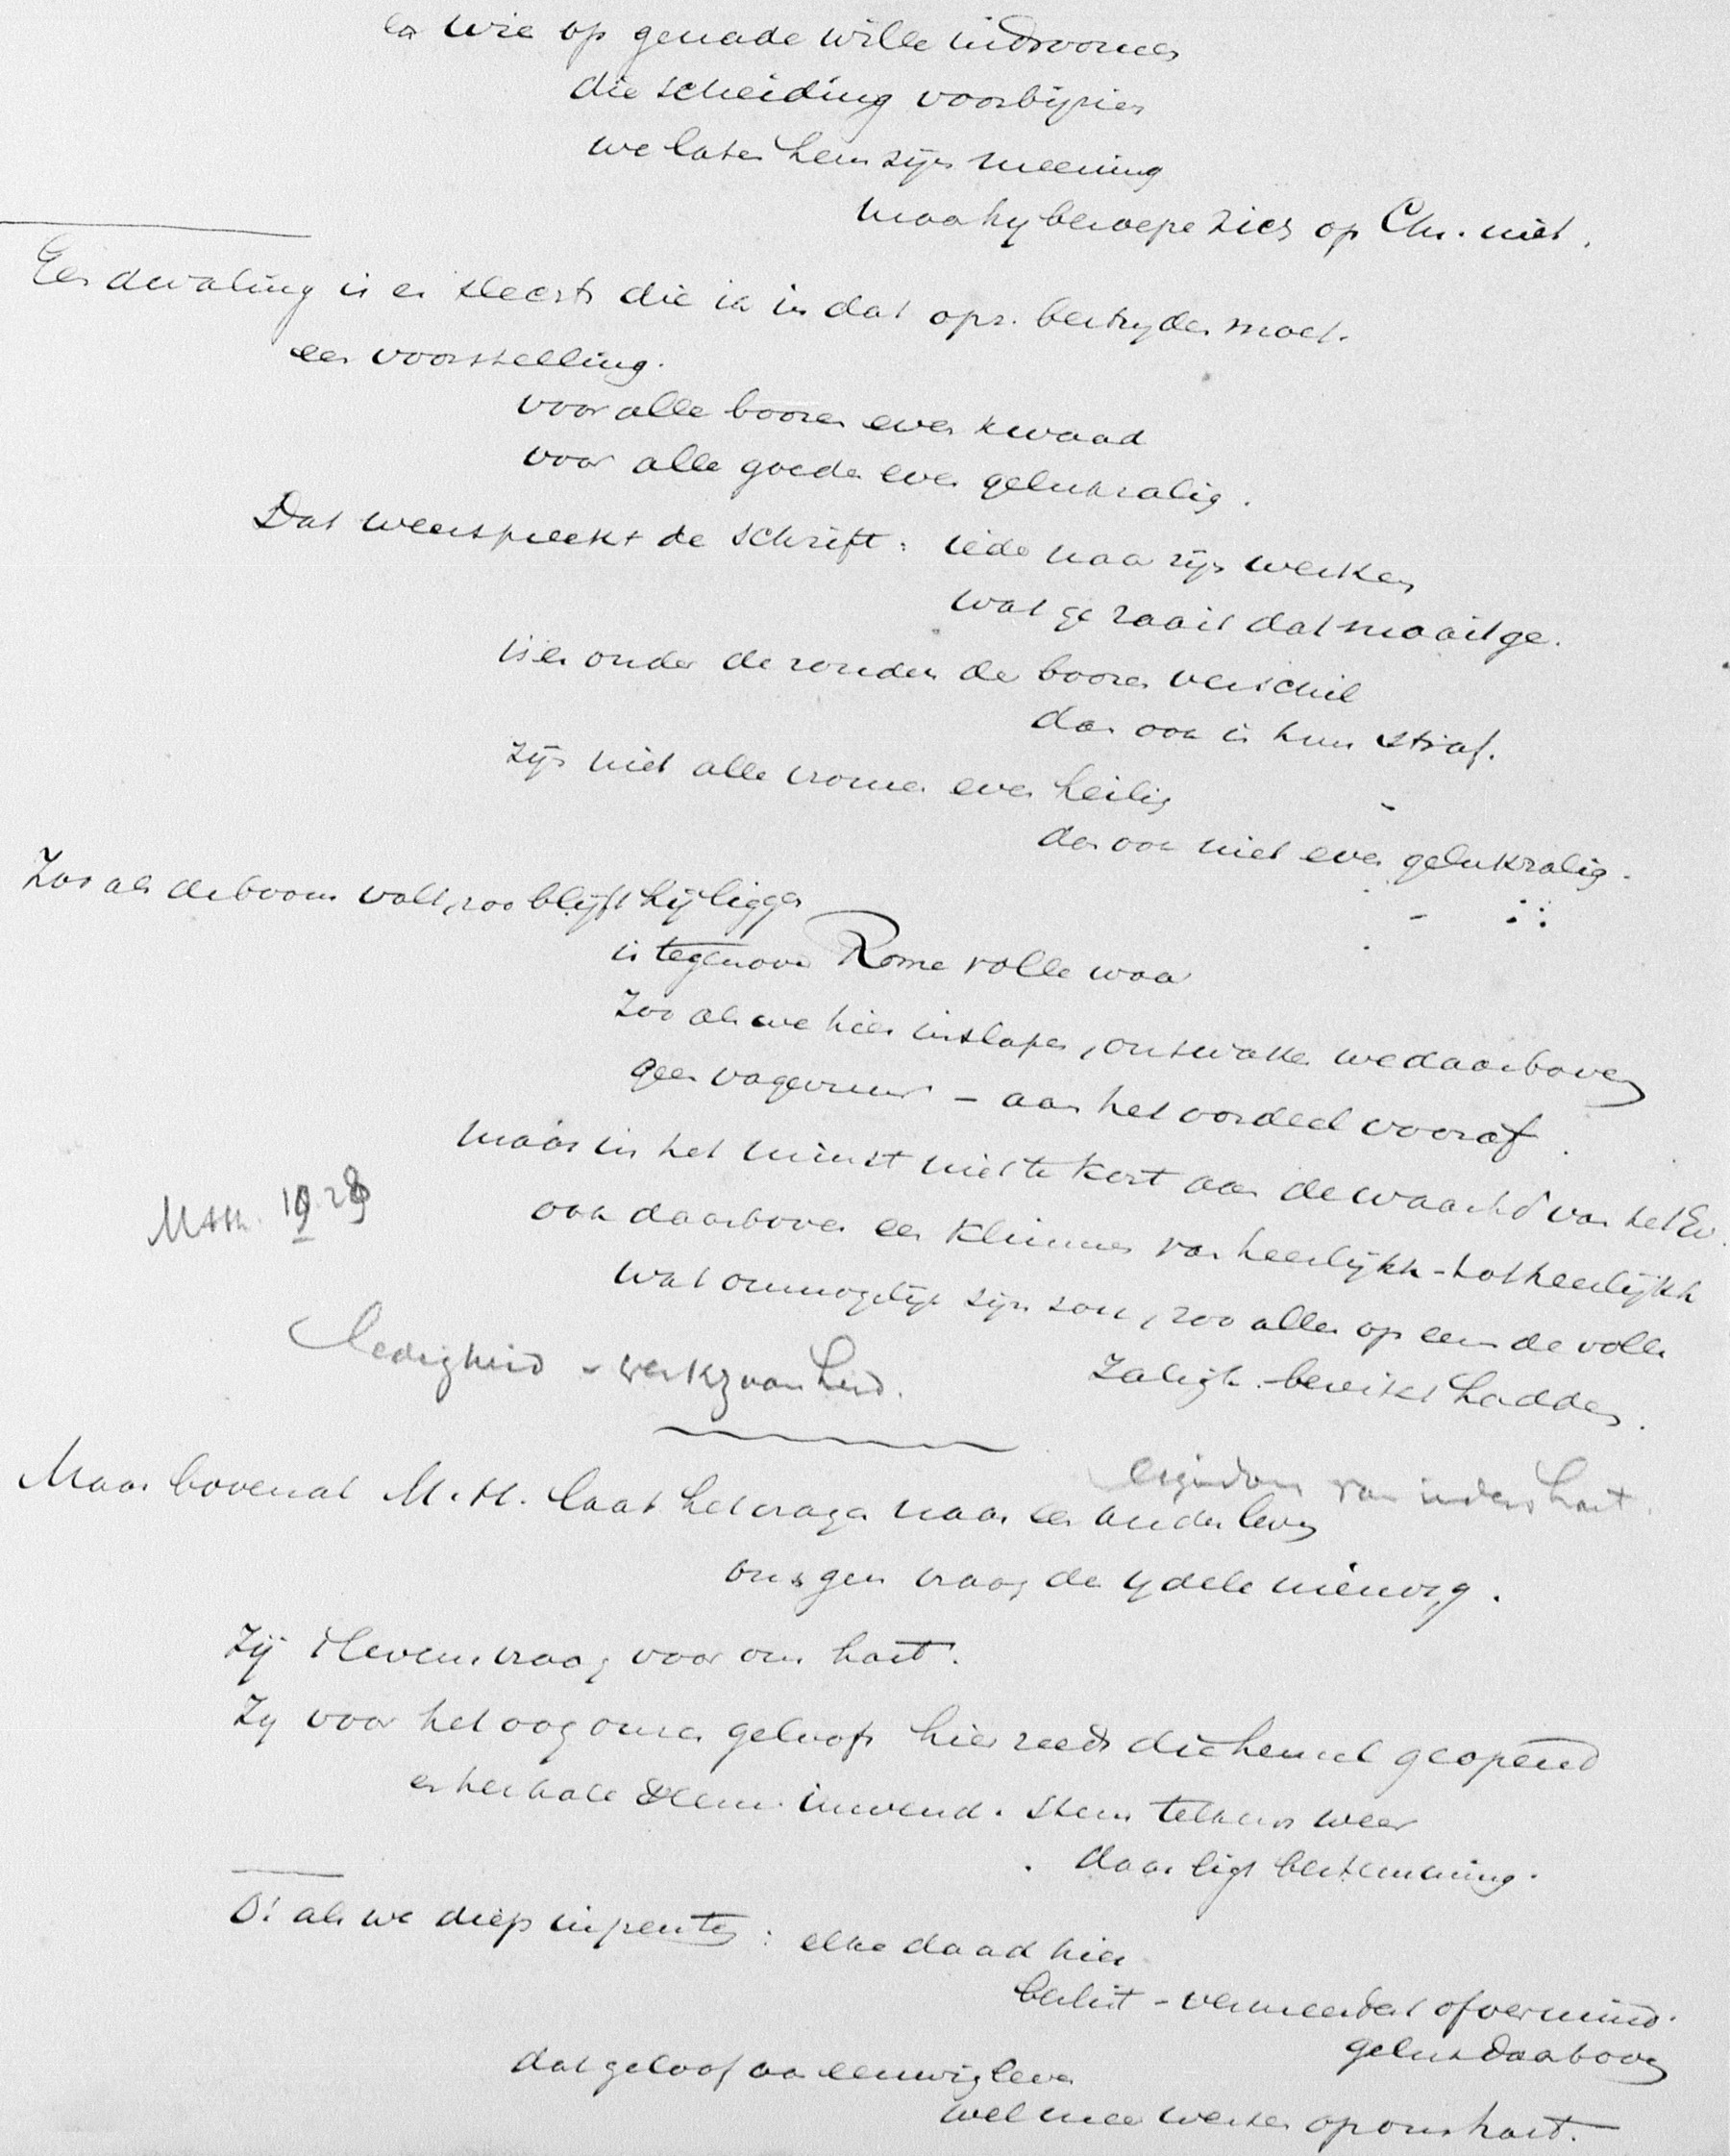 en wie op genade wille
die scheiding voorbijzien
we laten hem zijn meening
maar hij beroepe zich op Chr. niet.
Een dwaling is er slechts die ik in dat opz. bestrijden moet.
een voorstelling.
voor alle boozen even kwaad
voor alle goeden even gelukzalig.
Dat weerspreekt de Schrift: ieder naar zijn werken
wat ge zaait dat maait ge.
is er onder de zonden der boozen verschil
dan ook in hun straf.
zijn niet alle vromen even heilig
dan ook niet even gelukzalig.
Zoo als de boom valt, zoo blijft hij liggen
is tegenover Rome volle waar
Zoo als we hier inslapen, ontwaken we daarboven
geen vagevuur - aan het oordeel vooraf.
maar in het minst niet te kort aan de waarhd van het Ev.
ook daarboven een klimmen van heerlijkh - tot heerlijkh
Matth. 19.28
wat onmogelijk zijn zou, zoo allen op eens de volle
Zaligh. bereikt hadden.
ledigheid - werkzaamheid.
eigendom van ieders hart.
Maar bovenal M. H. laat het vragen naar een ander leven
ons geen vraag der ydele nieuwsg.
Zij levensvraag voor ons hart.
Zy voor het oog onzes geloofs hier reeds die hemel geopend
en herhale inwend. stem telkens weer
daar ligt bestemming.
O! als we diep inprenten: elke daad hier
beslist - vermeerdert of vermind.
geluk daarboven
dat geloof aan eeuwig leven
wel meer werken op ons hart.